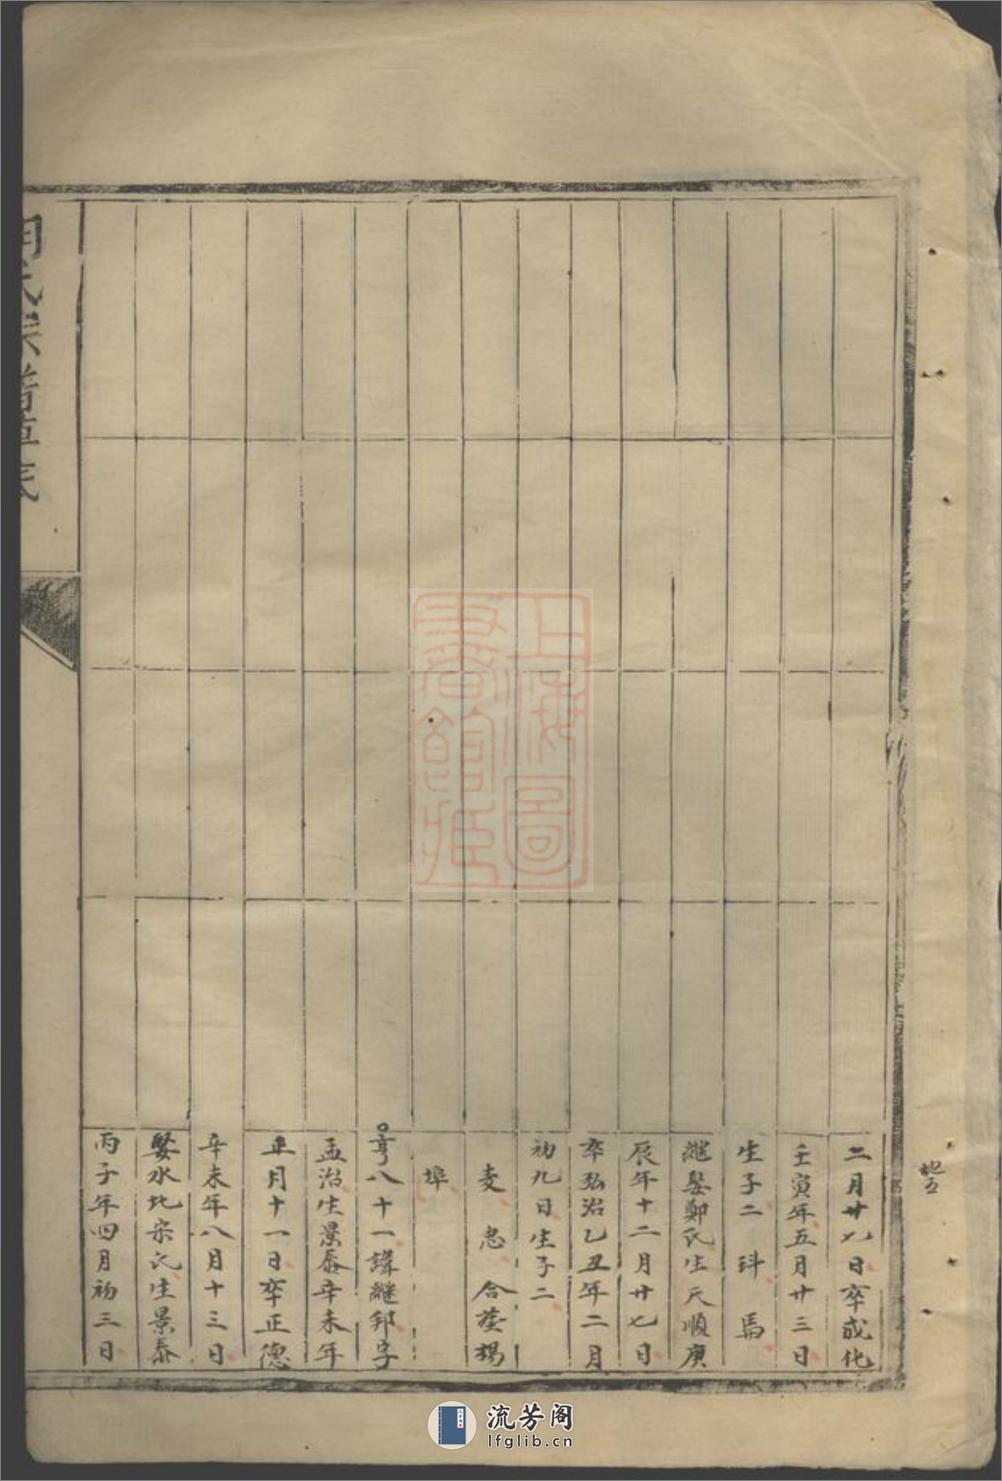 二月廿七日卒成化
壬寅年五月廿三日
生子二 科 馬
継娶鄭氏生天順庚
辰年十二月廿七日
卒弘治乙丑年二月
初九日生子二
麦 忠 合塟楊
埠
亨八十一諱継邦字
孟治生景泰辛未年
正月十一日卒正德
辛未年八月十三日
娶水北宗氏生景泰
丙子年四月初三日
氏宗譜
上海圖書館藏
流芳阁
lfglib.cn